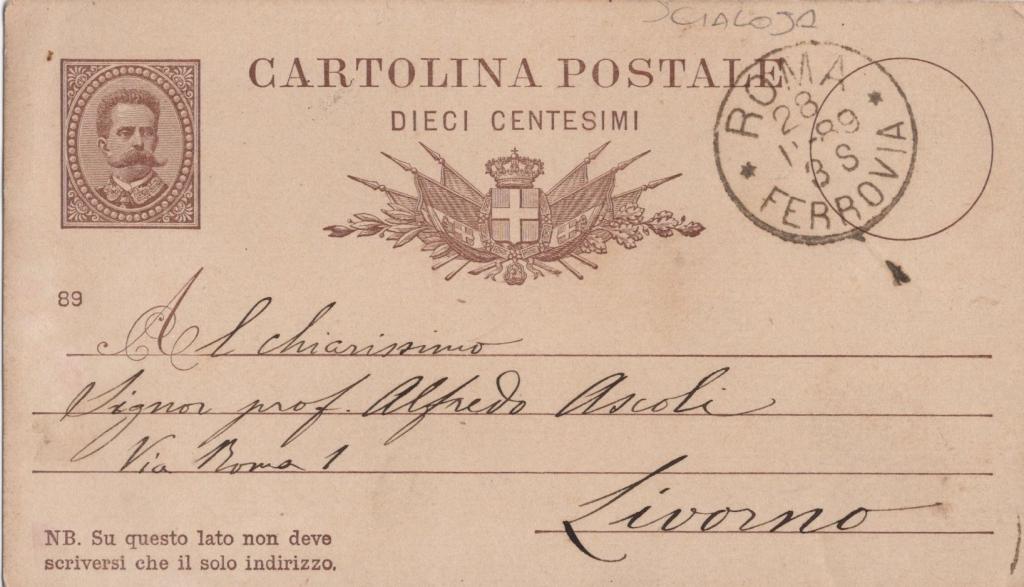 SCIALOJA
CARTOLINA POSTALE
DIECI CENTESIMI
ROMA
28
89
8 S
FERROVIA
89
Al chiarissimo
Signor prof. Alfredo Ascoli
Via Roma 1
Livorno
NB. Su questo lato non deve
scriversi che il solo indirizzo.